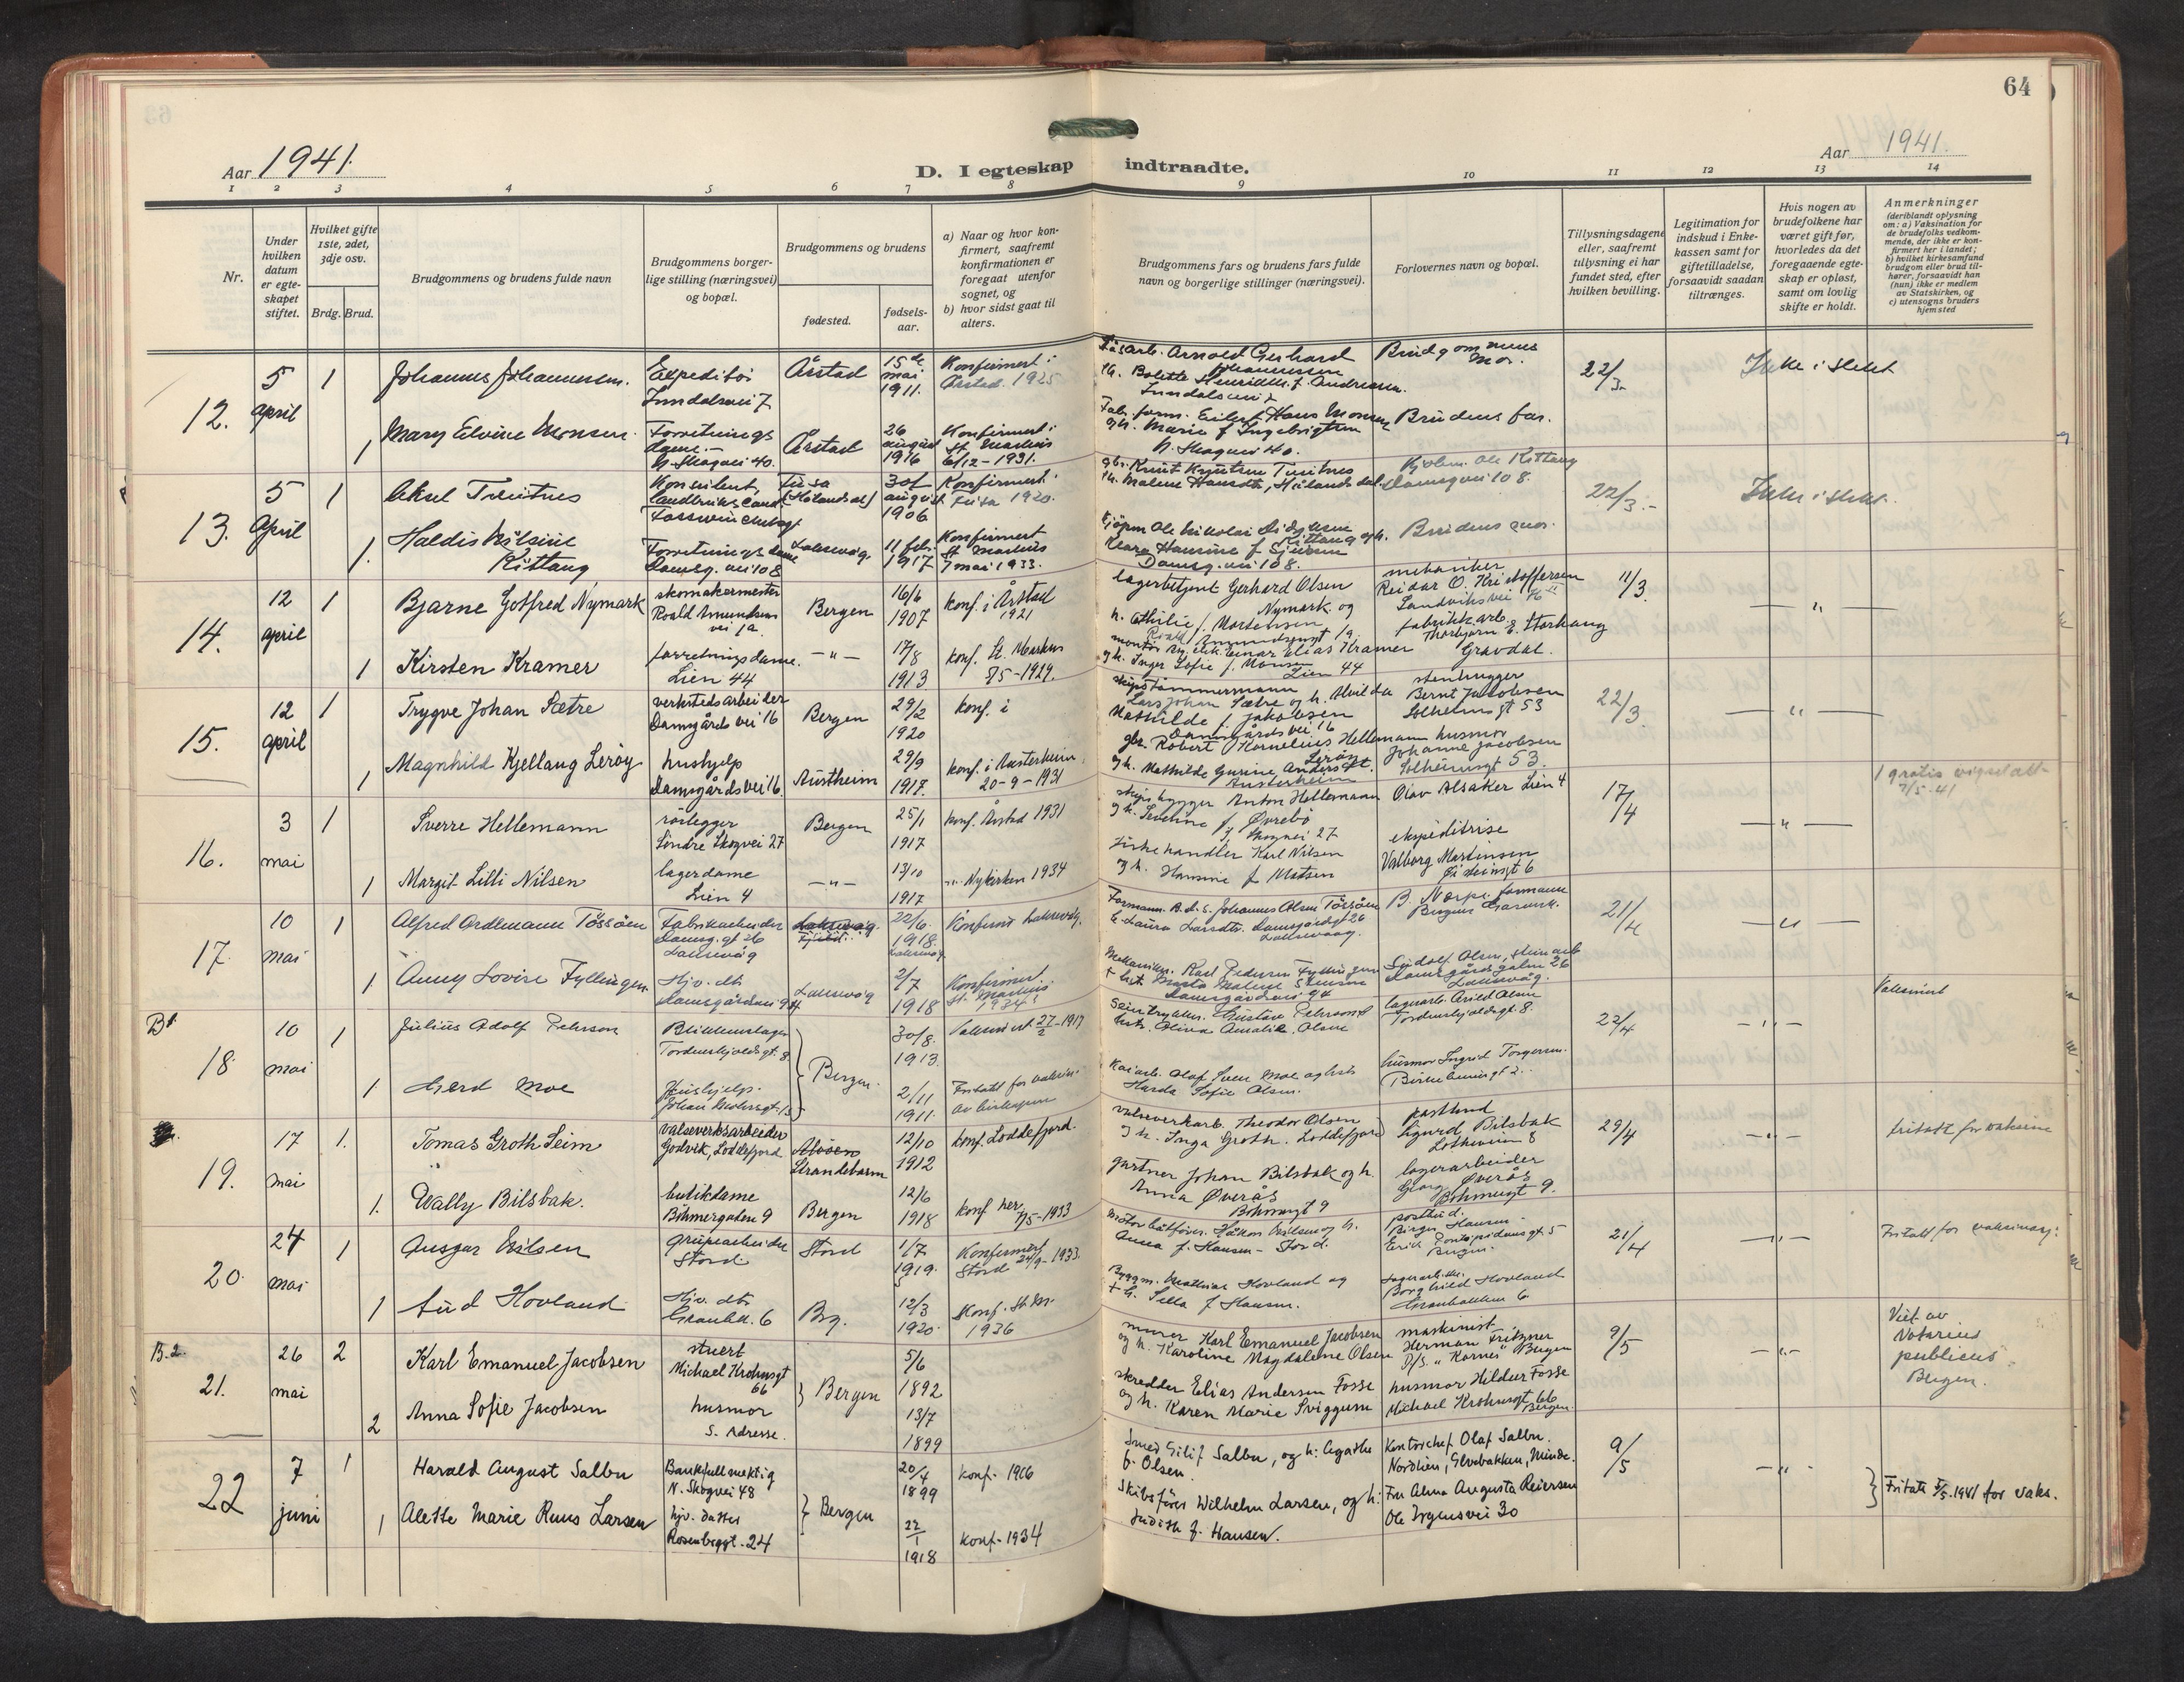 64
Aar 1941.
D. I egteskap indtraadte.
Aar 1941.
1 2 3 4 5 6 7 8 9 10 11 12 13 14
Nr.
Under hvilken datum er egte- skapet stiftet.
Hvilket gifte 1ste, 2det, 3dje osv.
Brdg. Brud.
Brudgommens og brudens fulde navn
Brudgommens borger- lige stilling (næringsvei) og bopæl.
Brudgommens og brudens
fødested.
fødsels- aar.
a) Naar og hvor kon- firmert, saafremt konfirmationen er foregaat utenfor sognet, og
b) hvor sidst gaat til alters.
Brudgommens fars og brudens fars fulde navn og borgerlige stillinger (næringsvei).
Forlovernes navn og bopæl.
Tillysningsdagene eller, saafremt tillysning ei har fundet sted, efter hvilken bevilling.
Legitimation for indskud i Enke- kassen samt for giftetilladelse, forsaavidt saadan tiltrænges.
Hvis nogen av brudefolkene har været gift før, hvorledes da det foregaaende egte- skap er opløst, samt om lovlig skifte er holdt.
Anmerkninger
(deriblandt oplysning om: a) Vaksination for de brudefolks vedkom- mende, der ikke er kon- firmert her i landet;
b) hvilket kirkesamfund brudgom eller brud til- hører, forsaavidt han (hun) ikke er medlem av Statskirken, og
c) utensogns bruders hjemsted
12. 5 april 1 Johannes Johannessen. Expeditør Årstad 15de mai 1911. Konfirmert i Årstad 1925
Arnold Gerhard Johannessen
Brudgommens mor. 22/3. Ikke i slekt
1 Mary Elvine Monsen. Forretnings dame. N. Skogvei 40. Årstad 26 august 1916 Konfirmert i St. Markus 6/12-1931.
Eilert Hans Monsen og h. Marie f. Ingebrigtsen N. Skogvei 40.
Brudens far.
13. 5 April 1 Aksel Tveitnes Konsulent, Fusa 30/ august 1906 Konfirmert i Fusa 1920.
Damsgvei 108. 22/3.- Ikke i slekt.
1. Haldis Kittang Forretningsdame Damsg. vei 108 Laksevåg 11 feb. 1917 Konfirmert St. Markus 7 mai 1933.
Kjøpm. Ole Nikolai Kittang og h. Klara Hansine f. Damsg. vei 108.
Brudens mor.
14. 12 april 1 Bjarne Gotfred Nymark skomakermester Roald Amundsens vei 1a. Bergen 16/6 1907 konf. i Årstad 1921
lagerbetjent Gerhard Olsen Nymark og h. Othilie f. Mortensen Roald Amundsensgt 1a.
mekaniker Reidar O. Kristoffersen Sandviksvei 11/3. — " —
1 Kirsten Kramer forretningsdame. Lien 44 —"— 17/8 1913 konf. St. Markus
Einar Elias Kramer og h. Inger Sofie f. Monsen Lien 44
fabrikkarb. Thorbjørn E. Storhaug Gravdal.
15. 12 april 1 Trygve Johan Sætre verkstedsarbeider Damsgårdsvei 16 Bergen 29/2 1920 konf. i
skipstømmermann Lars Johan Sætre og h. Hvilda Mathilde f. Jakobsen Damsgårdsvei 16
stenhugger Bernt Jacobsen Solheimsgt 53 22/3. — " —
1 Magnhild Kjellaug Lerøy hushjelp Damsgårdsvei 16. Austrheim 29/9 1917. konf. i Austerheim 20-9-1931
gbr. Robert Kornelius Hellemann Lerøy og h. Mathilde Gurine Andersdt. Austerheim
husmor Johanne Jacobsen Solheimsgt 53.
1 gratis vigselatt- 7/5-41
16. 3 mai 1 Sverre Hellemann rørlegger Søndre Skogvei 27 Bergen 25/1 1917 konf. Årstad 1931
skipsbygger Anton Hellemann og h. Severine f. Øvrebø S. Skogvei 27
Olav Alsaker Lien 4 17/4 — " —
1 Margit Lilli Nilsen lagerdame Lien 4 —"— 13/10 1917 Nykirken 1934
fiskehandler Karl Nilsen og h. Hansine f. Madsen
ekspeditrise Valborg Martinsen
17. 10 mai 1 Alfred Ordemann Tössöen Fabrikarbeider Damsg. gt 26 Laksevåg Laksevåg 22/6. 1918 Konfirmert Laksevåg.
Formann. Johannes Olsen Tössöen Laura Larsdtr. Damsgårdsgt 26 Laksevaag.
21/4 — " —
1 Anny Lovise Fyllingen Hjv. dtr. Damsgårdsvei 94 Laksevåg 2/7 1918 Konfirmert St. Markus 1934
Mekaniker. Karl Pedersen Fyllingen Marta Malene Damsgårdsvei 94
Olsen, Damsgårdsgaten 26 Laksevåg.
18 10 mai 1 Julius Adolf Pehrson Blikkenslager Tordenskjoldsgt. 8. Bergen. 30/8. 1913. Vaksinert 27/2-1917
Gustav Pehrson hstr. Oliva Amalie Olsen
lagerarb. Arild Olsen Tordenskjoldsgt. 8. 22/4 — " — Vaksinert
1 Gerd Moe Hushjelp. 2/11 1911. Fritatt for vaksin.
Kaiarb. Olaf Sven Moe og hstr. Harda Sofie Olsen.
husmor Ingrid Torgersen.
19. 17 mai 1. Tomas Groth Seim valseverksarbeider Godvik, Loddefjord Strandebarm 12/10 1912 konf. Loddefjord.
valseverkarb. Theodor Olsen og h. Inga Groth. Loddefjord
postbud Sigurd Bilsbak 29/4 — " — fritatt for vaksine
1. Wally Bilsbak. butikdame Böhmergaten 9 Bergen 12/6 1918 konf her 7/5-1933
gartner Johan Bilsbak og h. Anna Øverås Böhmersgt 9
lagerarbeider Georg Øverås Böhmersgt 9.
20. 24 mai 1 Ansgar Eilsen Grubearbeider Stord Stord 1/7 1919. Konfirmert Stord 24/9-1933.
Håkon Eilsen og h. Anna f. Hansen - Stord.
postbud. Birger Hansen Erik Pontoppidansgt. 5 Bergen. 21/4 — " — Fritatt for vaksinasj.
1 Aud Hovland Hjv. dtr. 6 Brg. 12/3 1920. Konf. St. M. 1936
Byggm. Mathias Hovland og h. Silla f. Hansen.
Lagerarbeider. Borghild Hovland
B.2. 21. 26 mai 2 Karl Emanuel Jacobsen stuert Michael Krohnsgt 66 Bergen 5/6 1892
murer Karl Emanuel Jacobsen og h. Karoline Magdalene Olsen
maskinist Herman Fritzner D/S. "Kornes" Bergen 9/5 — " —
Viet av Notarius publicus Bergen.
2 Anna Sofie Jacobsen husmor S. Adresse. 13/7 1899
skredder Elias Andersen Fosse og h. Karen Marie Sviggum
husmor Hildur Fosse Michael Krohnsgt 66 Bergen.
22 7 juni 1 Harald August Salbu Bankfullmektig N. Skogvei 48 Bergen 20/4 1899 konf. 1916
Smed Eilif Salbu, og h: Agathe f. Olsen.
Kontorchef Olaf Salbu. Nordlien, Elvebakken, Minde. 9/5 — " —
1 Alette Marie Ruus Larsen hjv. datter Rosenbergsgt. 24 22/1 1918 konf. 1934
Skibsfører Wilhelm Larsen, og h: Judith f. Hansen.
Fru Alma Augusta Reiersen Ole Irgensvei 30
Fritatt 7/5.1941 for vaks.